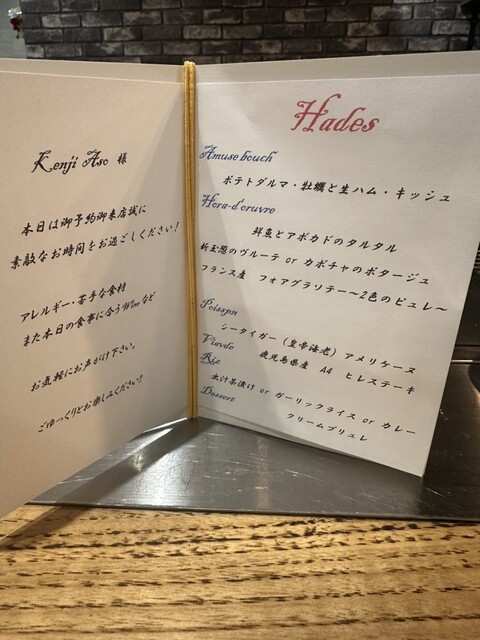 Kenji Aso 様
本日は御予約御来店試に
素敵なお時間をお過ごしください!
アレルギー・苦手な食材
また本日の食事に合うWineなど
お気軽にお声がけ下さい。
ごゆっくりとお楽しみください!!
Hades
Amuse bouch
ポテトダルマ・牡蠣と生ハム・キッシュ
Hora-d'oruvre
鮮魚とアボカドのタルタル
新玉葱のヴルーテ or カボチャのポタージュ
フランス産 フォアグラソテー~2色のピュレ~
Poisspn
シータイガー(皇帝海老)アメリケーヌ
Viavde
鹿児島県産 A4 ヒレステーキ
Riz
出汁茶漬け or ガーリックライス or カレー
Dessert
クリームブリュレ